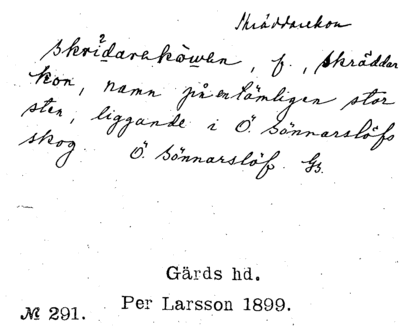 Skräddarekon
skri²darekòwan, f., skräddar
kon, namn på en tämligen stor
sten, liggande i Ö. Sönnarslöfs
skog. Ö. Sönnarslöf. Gs.
Gärds hd.
Per Larsson 1899.
№ 291.